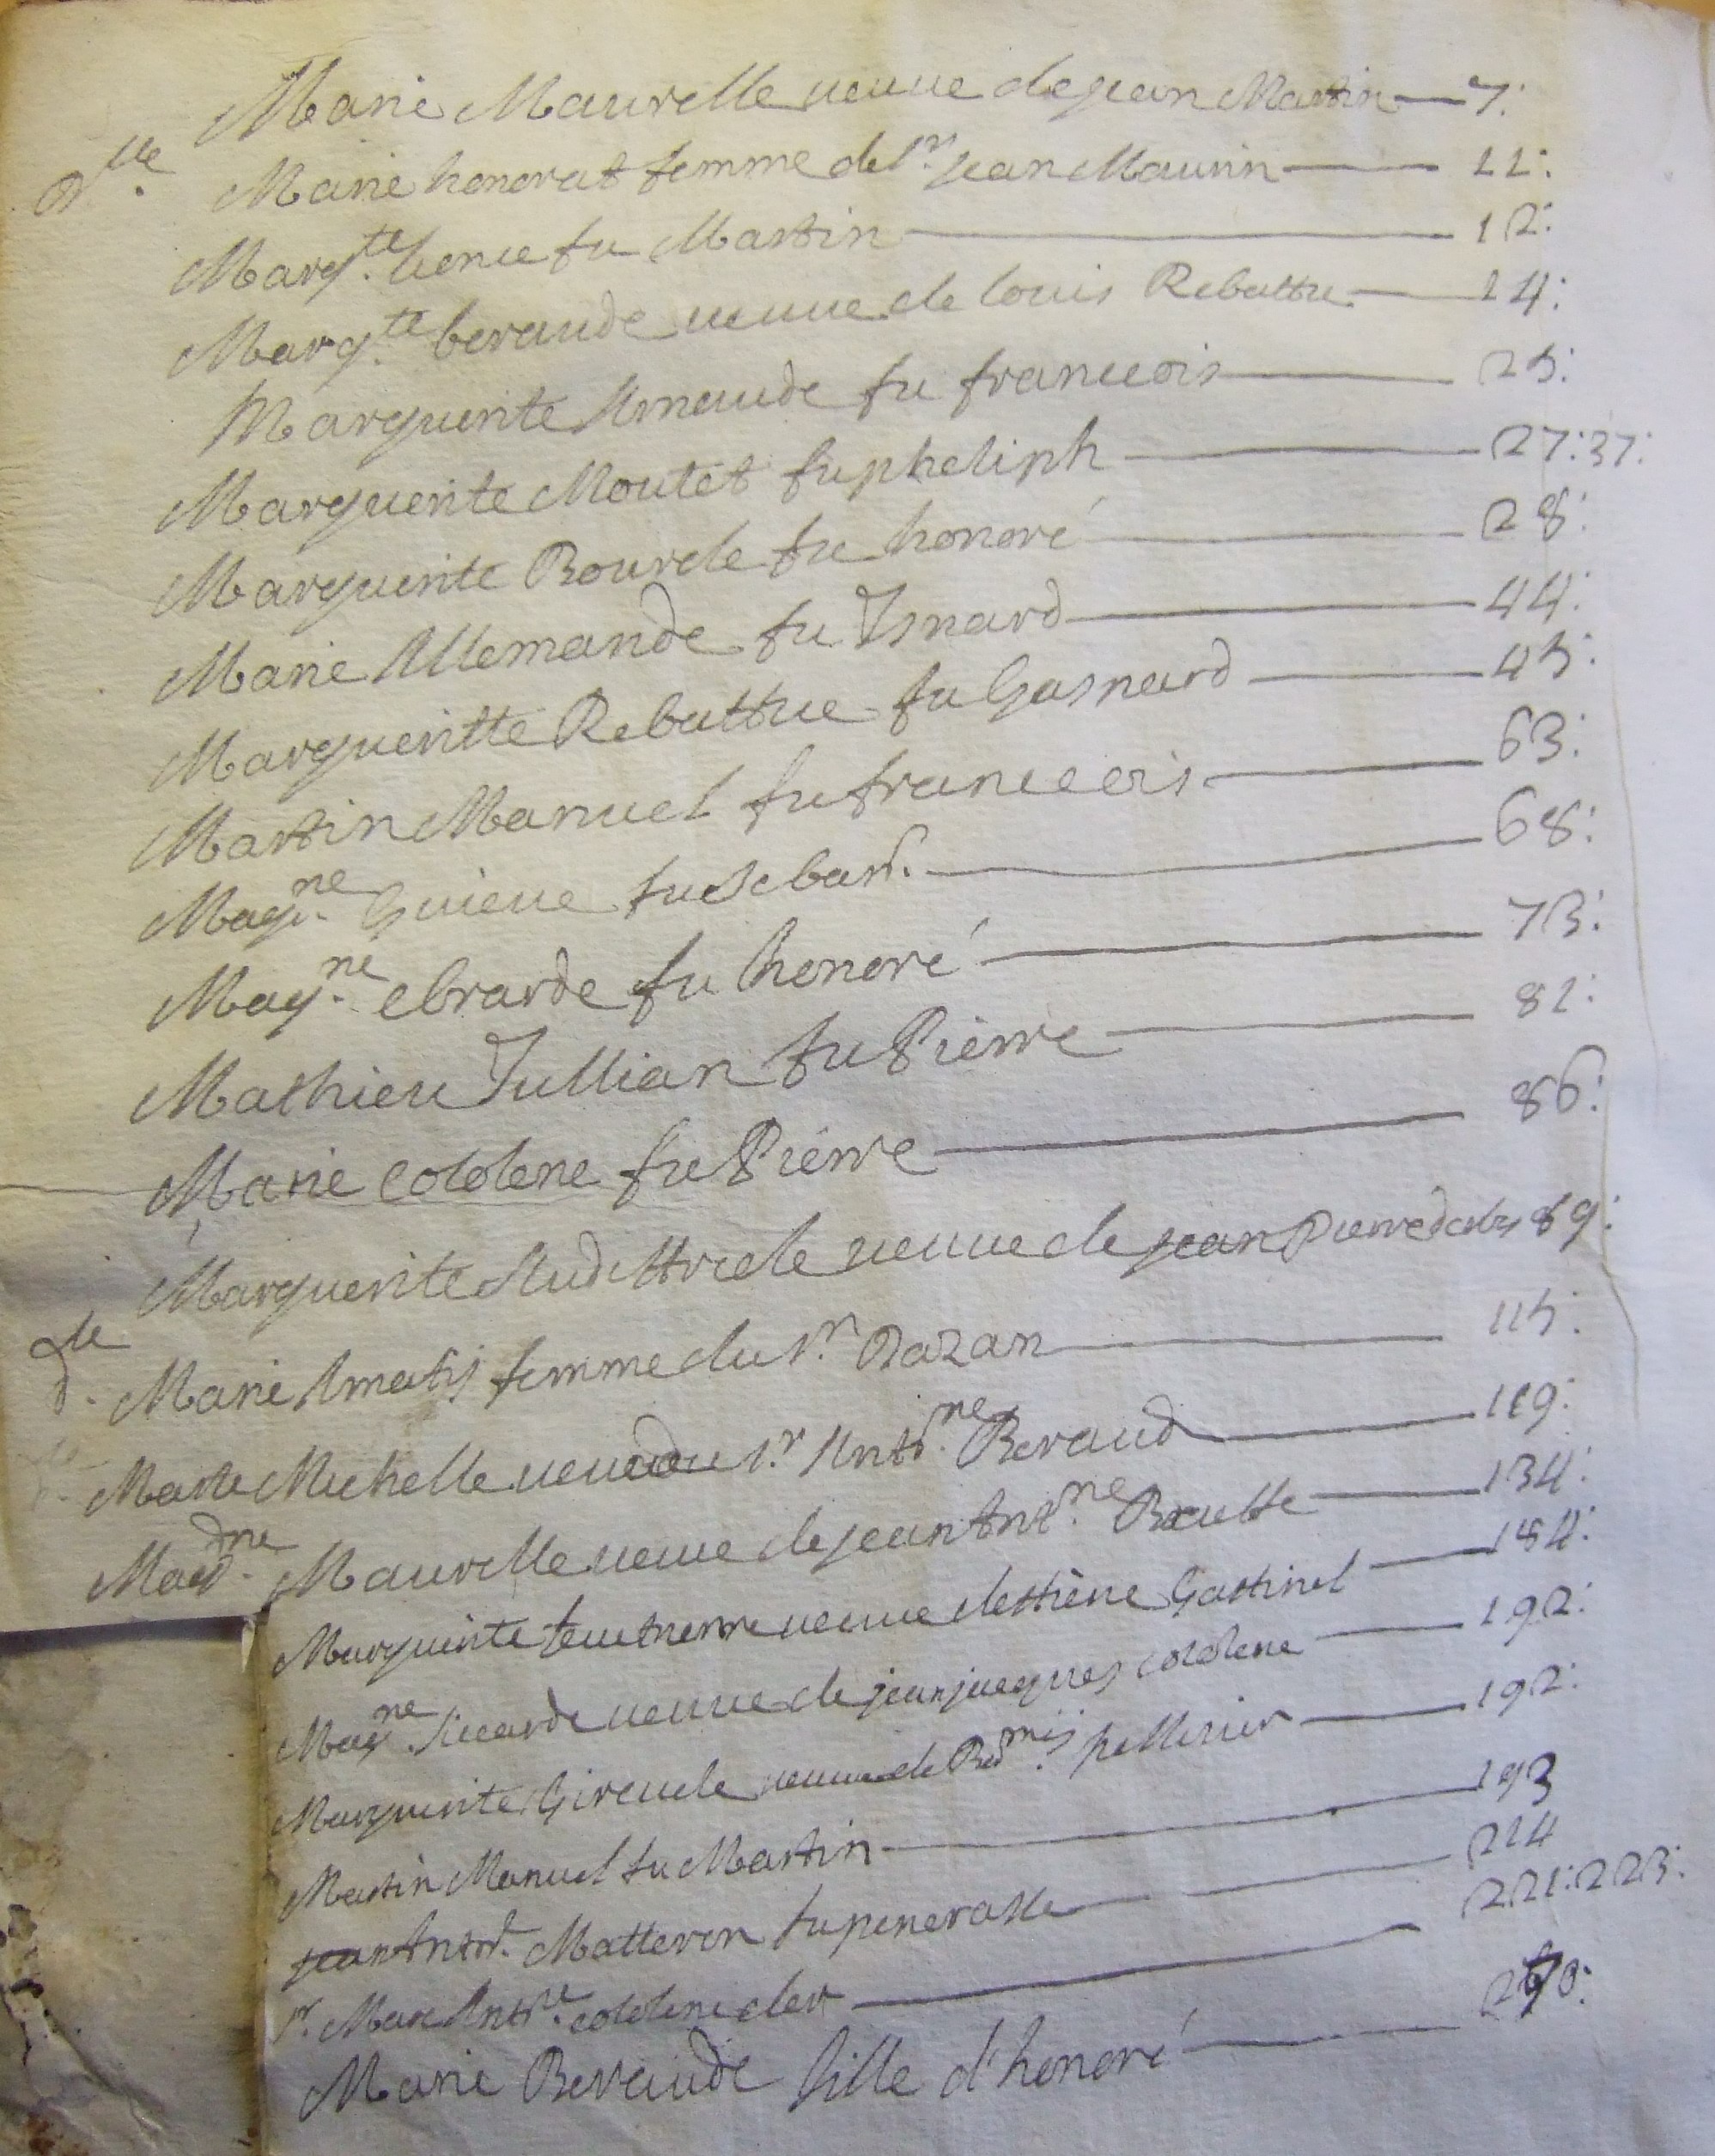 Marie Maurelle veuve de jean Martin — 7:
dlle. Marie honorat femme de sr. jean Maurin — 11:
Margte. fu Martin — 12:
Margte. beraude veuve de louis Rebattu — 14:
Marguerite Arnaude fu franccois — 25:
Marguerite Moutet fu pheliph — 27: 37:
Marguerite Bourele fu honoré — 28:
Marie Allemande fu Isnard — 44:
Margueritte Rebattue fu Gaspard — 45:
Martin Manuel fu franceois — 63:
Magne. Guieue fu Sebast. — 68:
Magne. ebrarde fu honoré — 73:
Mathieu Jullian fu Pierre — 81:
Marie coldene fu Pierre — 86:
Marguerite veuve de jean Pierre 89:
dlle. Marie Amatis femme du sr. Razan — 115:
Marte Michelle veuve du sr. Antne. Beraud — 119:
Madne. Maurelle veuve de jean Antne. — 134:
Marguerite veuve dettiene Gastinel — 184:
Magne. Sicarde veuve de jean jacques coldene — 192:
Marguerite Giraude veuve de pellissier — 192:
Martin Manuel fu Martin — 193
jean Antd. Matteron fu — 214
sr. Marc Antne. coldene — 221: 223:
Marie Beraude fille d'honoré — 270: